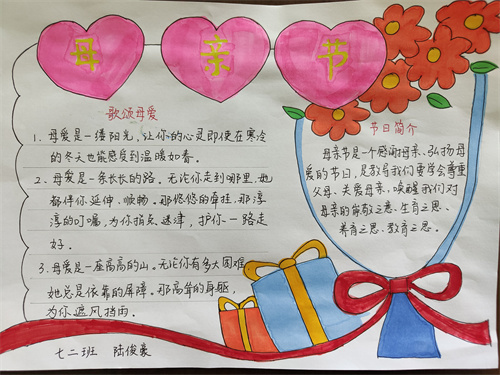 母亲节
歌颂母爱
1. 母爱是一缕阳光，让你的心灵即使在寒冷
的冬天也能感受到温暖如春。
2. 母爱是一条长长的路。无论你走到哪里，她
都伴你延伸、顺畅。那悠悠的牵挂，那谆
谆的叮嘱，为你指点迷津，护你一路走
好。
3. 母爱是一座高高的山。无论你有多大困难
她总是依靠的屏障。那高耸的身躯，
为你遮风挡雨。
七二班 陆俊豪
节日简介
母亲节是一个感谢母亲、弘扬母
爱的节日，是教育我们要学会尊重
父母、关爱母亲，唤醒我们对
母亲的崇敬之意、生育之恩、
养育之恩、教育之恩。